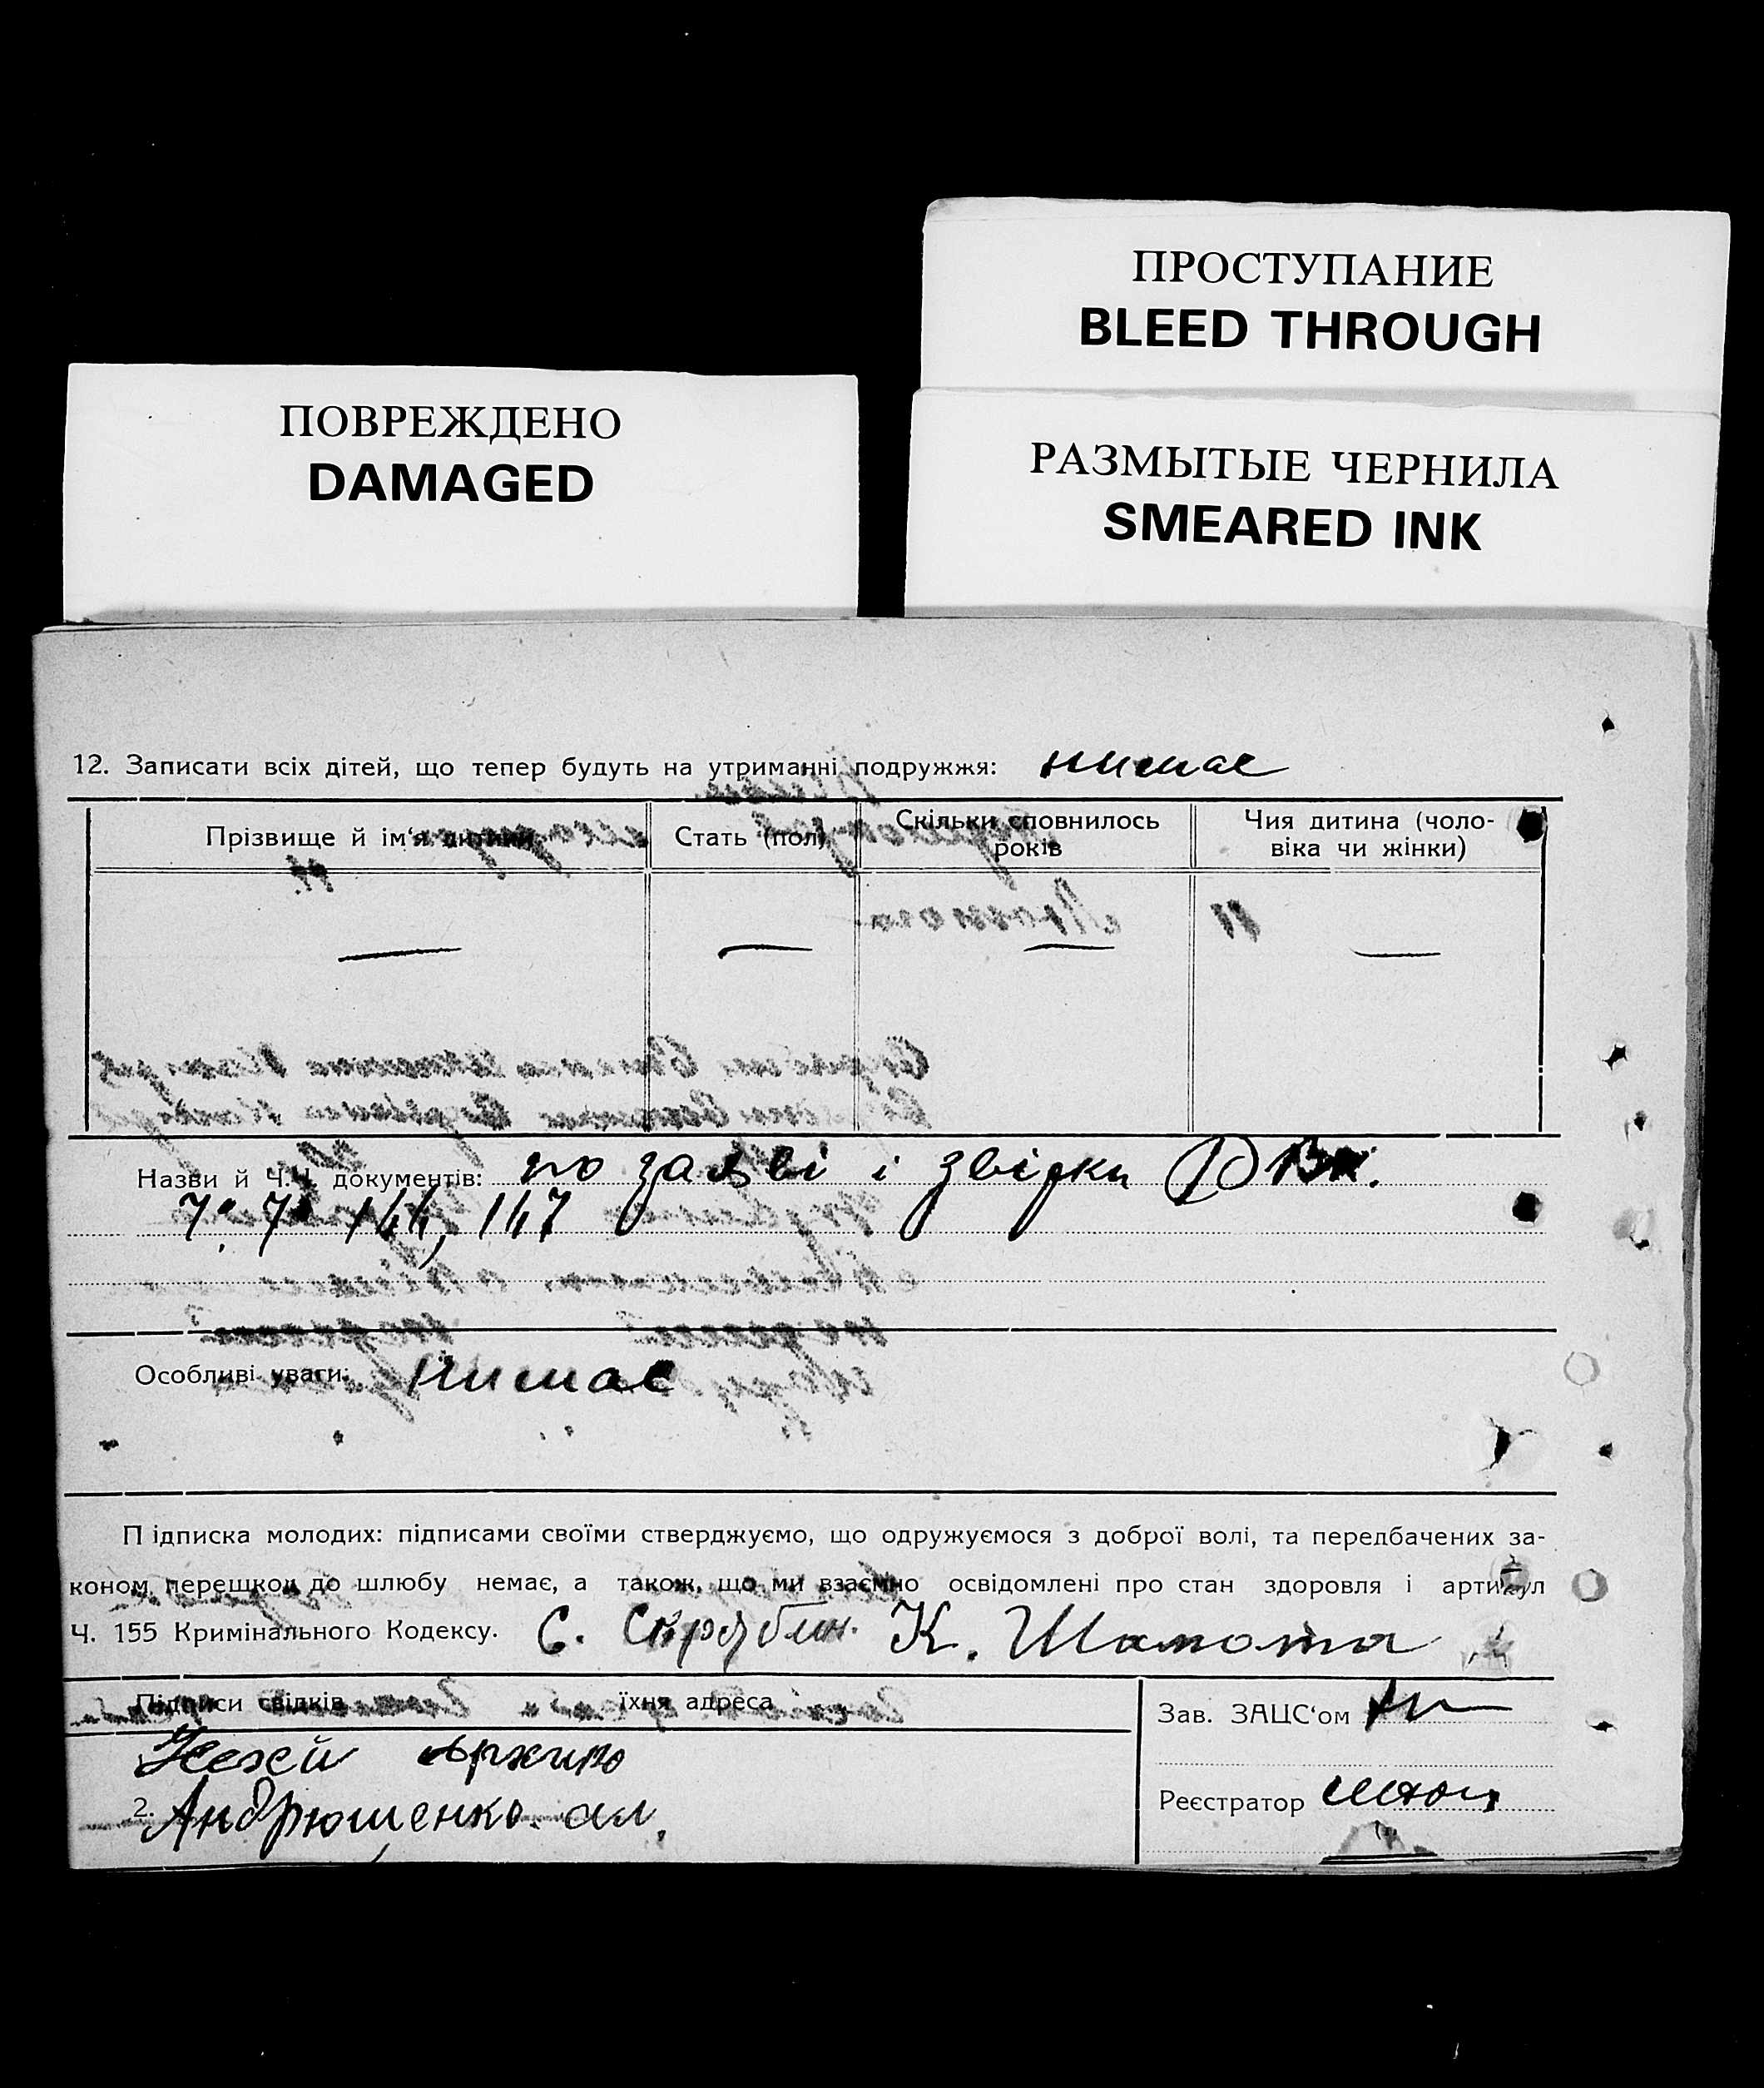 ПРОСТУПАНИЕ
BLEED THROUGH
ПОВРЕЖДЕНО
DAMAGED
РАЗМЫТЫЕ ЧЕРНИЛА
SMEARED INK
12. Записати всіх дітей, що тепер будуть на утриманні подружжя: нимає
Прізвище й ім‘я дитини
Стать (пол)
Скільки сповнилось
років
Чия дитина (чоло-
віка чи жінки)
— — — —
Назви й Ч.Ч. документів: по заяві і звірки
144, 147
Особливі уваги: нимає
Підписка молодих: підписами своїми стверджуємо, що одружуємося з доброї волі, та передбачених за-
коном перешкод до шлюбу немає, а також, що ми взаємно освідомлені про стан здоровля і артикул
Ч. 155 Кримінального Кодексу. С. Скрябин. К. Шамота
Підписи свідків їхня адреса
Зав. ЗАЦС‘ом
2. Андрющенко
Реєстратор